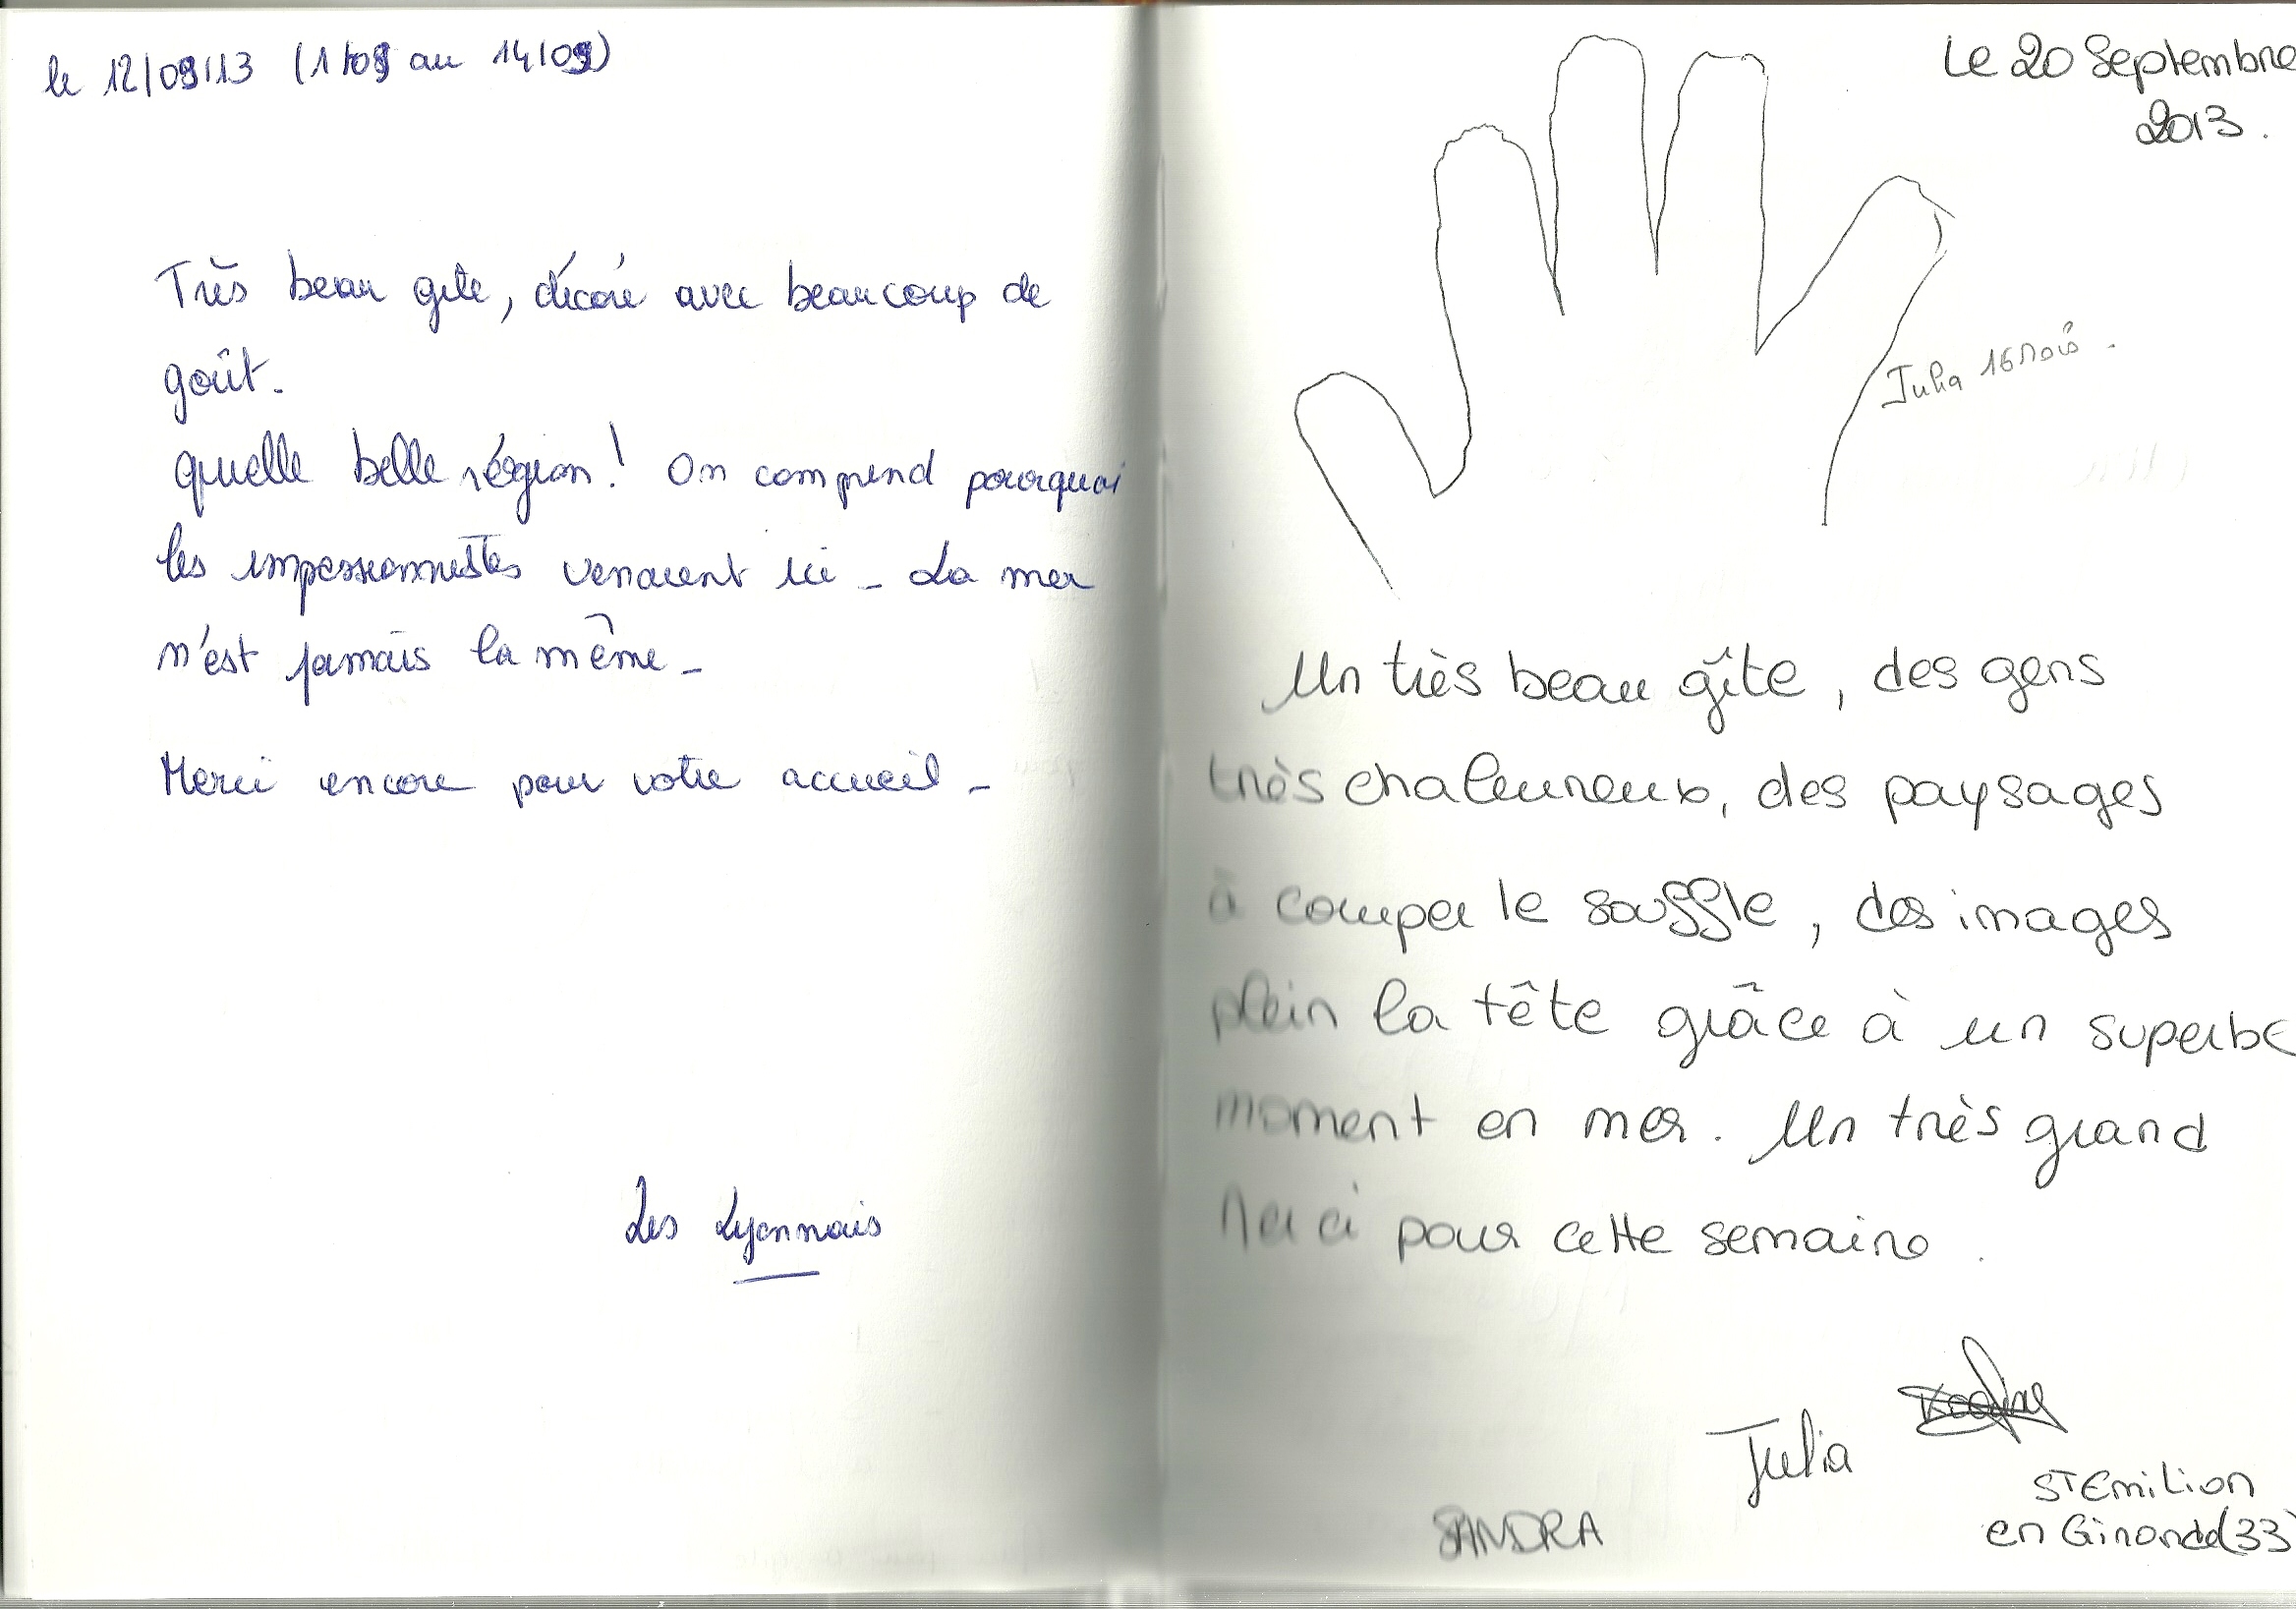 le 12/09/13 (1/09 au 14/09)
Très beau gîte, décoré avec beaucoup de
goût.
quelle belle région! On comprend pourquoi
les impessionnistes venaient ici - La mer
n'est jamais la même -
Merci encore pour votre accueil -
Les Lyonnais
Le 20 Septembre
2013.
Julia 16 mois.
Un très beau gîte, des gens
très chaleureux, des paysages
à couper le souffle, des images
plein la tête grâce à un superbe
moment en mer. Un très grand
Merci pour cette semaine.
Julia
St Emilion
SANDRA
en Gironde (33)